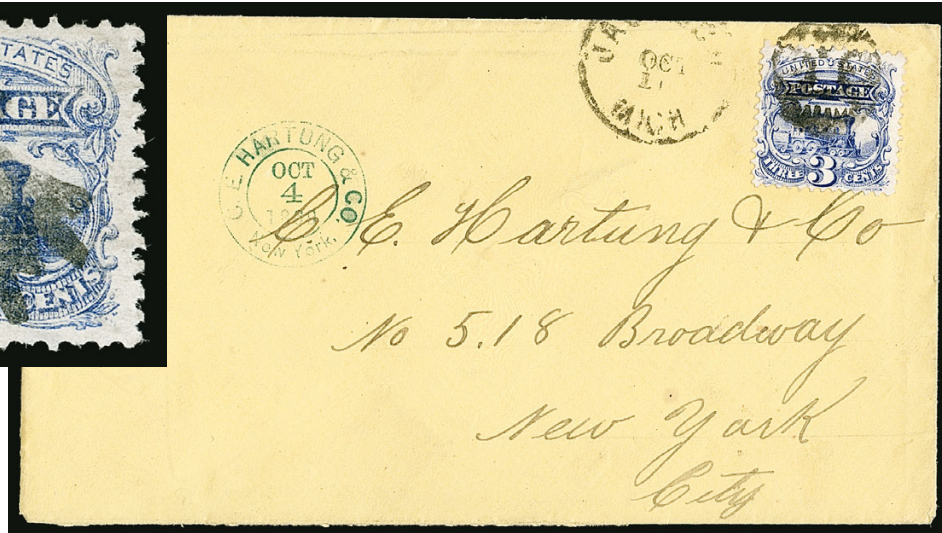 STATES
GE
CENTS
OCT
MICH
UNITED STATES
POSTAGE
THREE 3 CENTS
C. E. HARTUNG & CO.
OCT
4
New York.
C. E. Hartung & Co
No 5.18 Broadway
New York
City